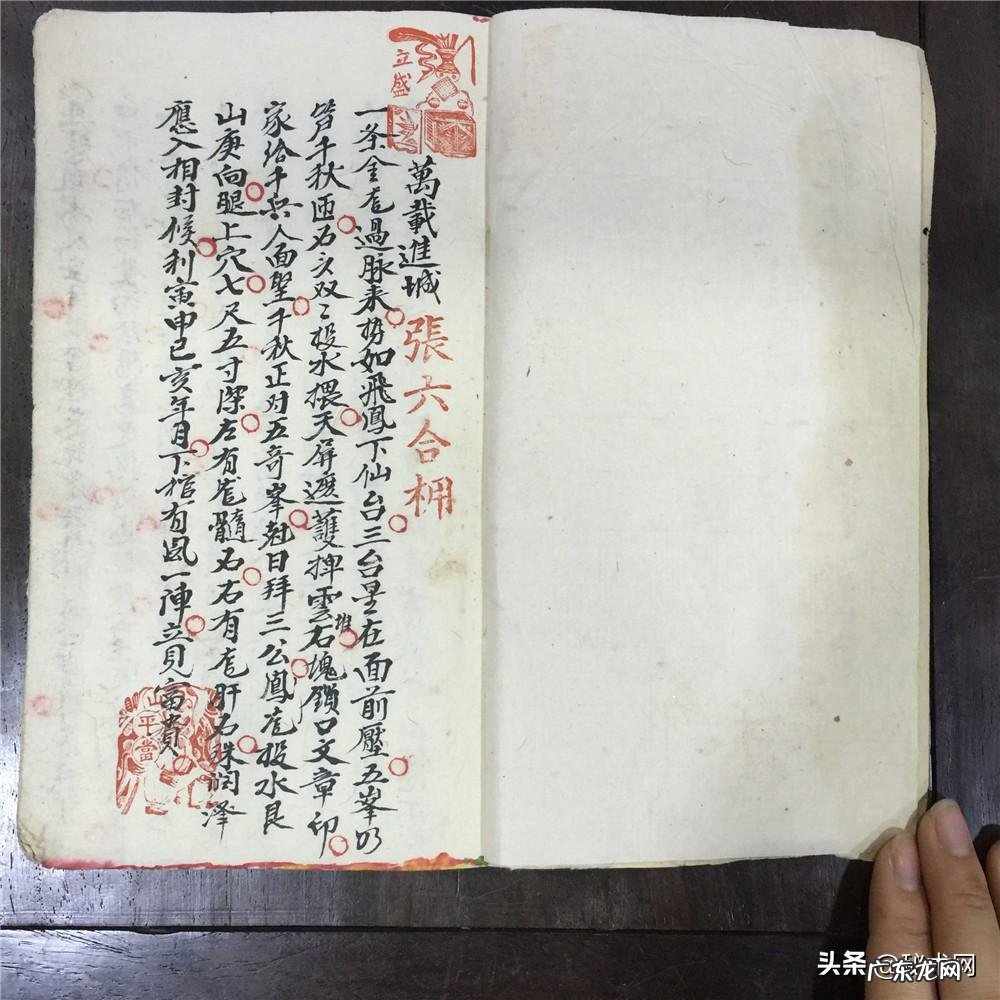 立盛
萬載進城 張六合
一条金龙過脉来势如飛鳳下仙台三台星在面前壓五峯
笋千秋面石文双々投水猥天屏遮護押雲堆石塊鎖口文章印
家給千兵人面堅千秋正对五奇峯尅日拜三公鳳龙投水艮
山庚向腿上穴七尺五寸深左有龙髓石右有龙肝石珠润泽
應入相封候利寅申巳亥年月下棺有風一陣立見富貴
平當
头条 @
广东龙网